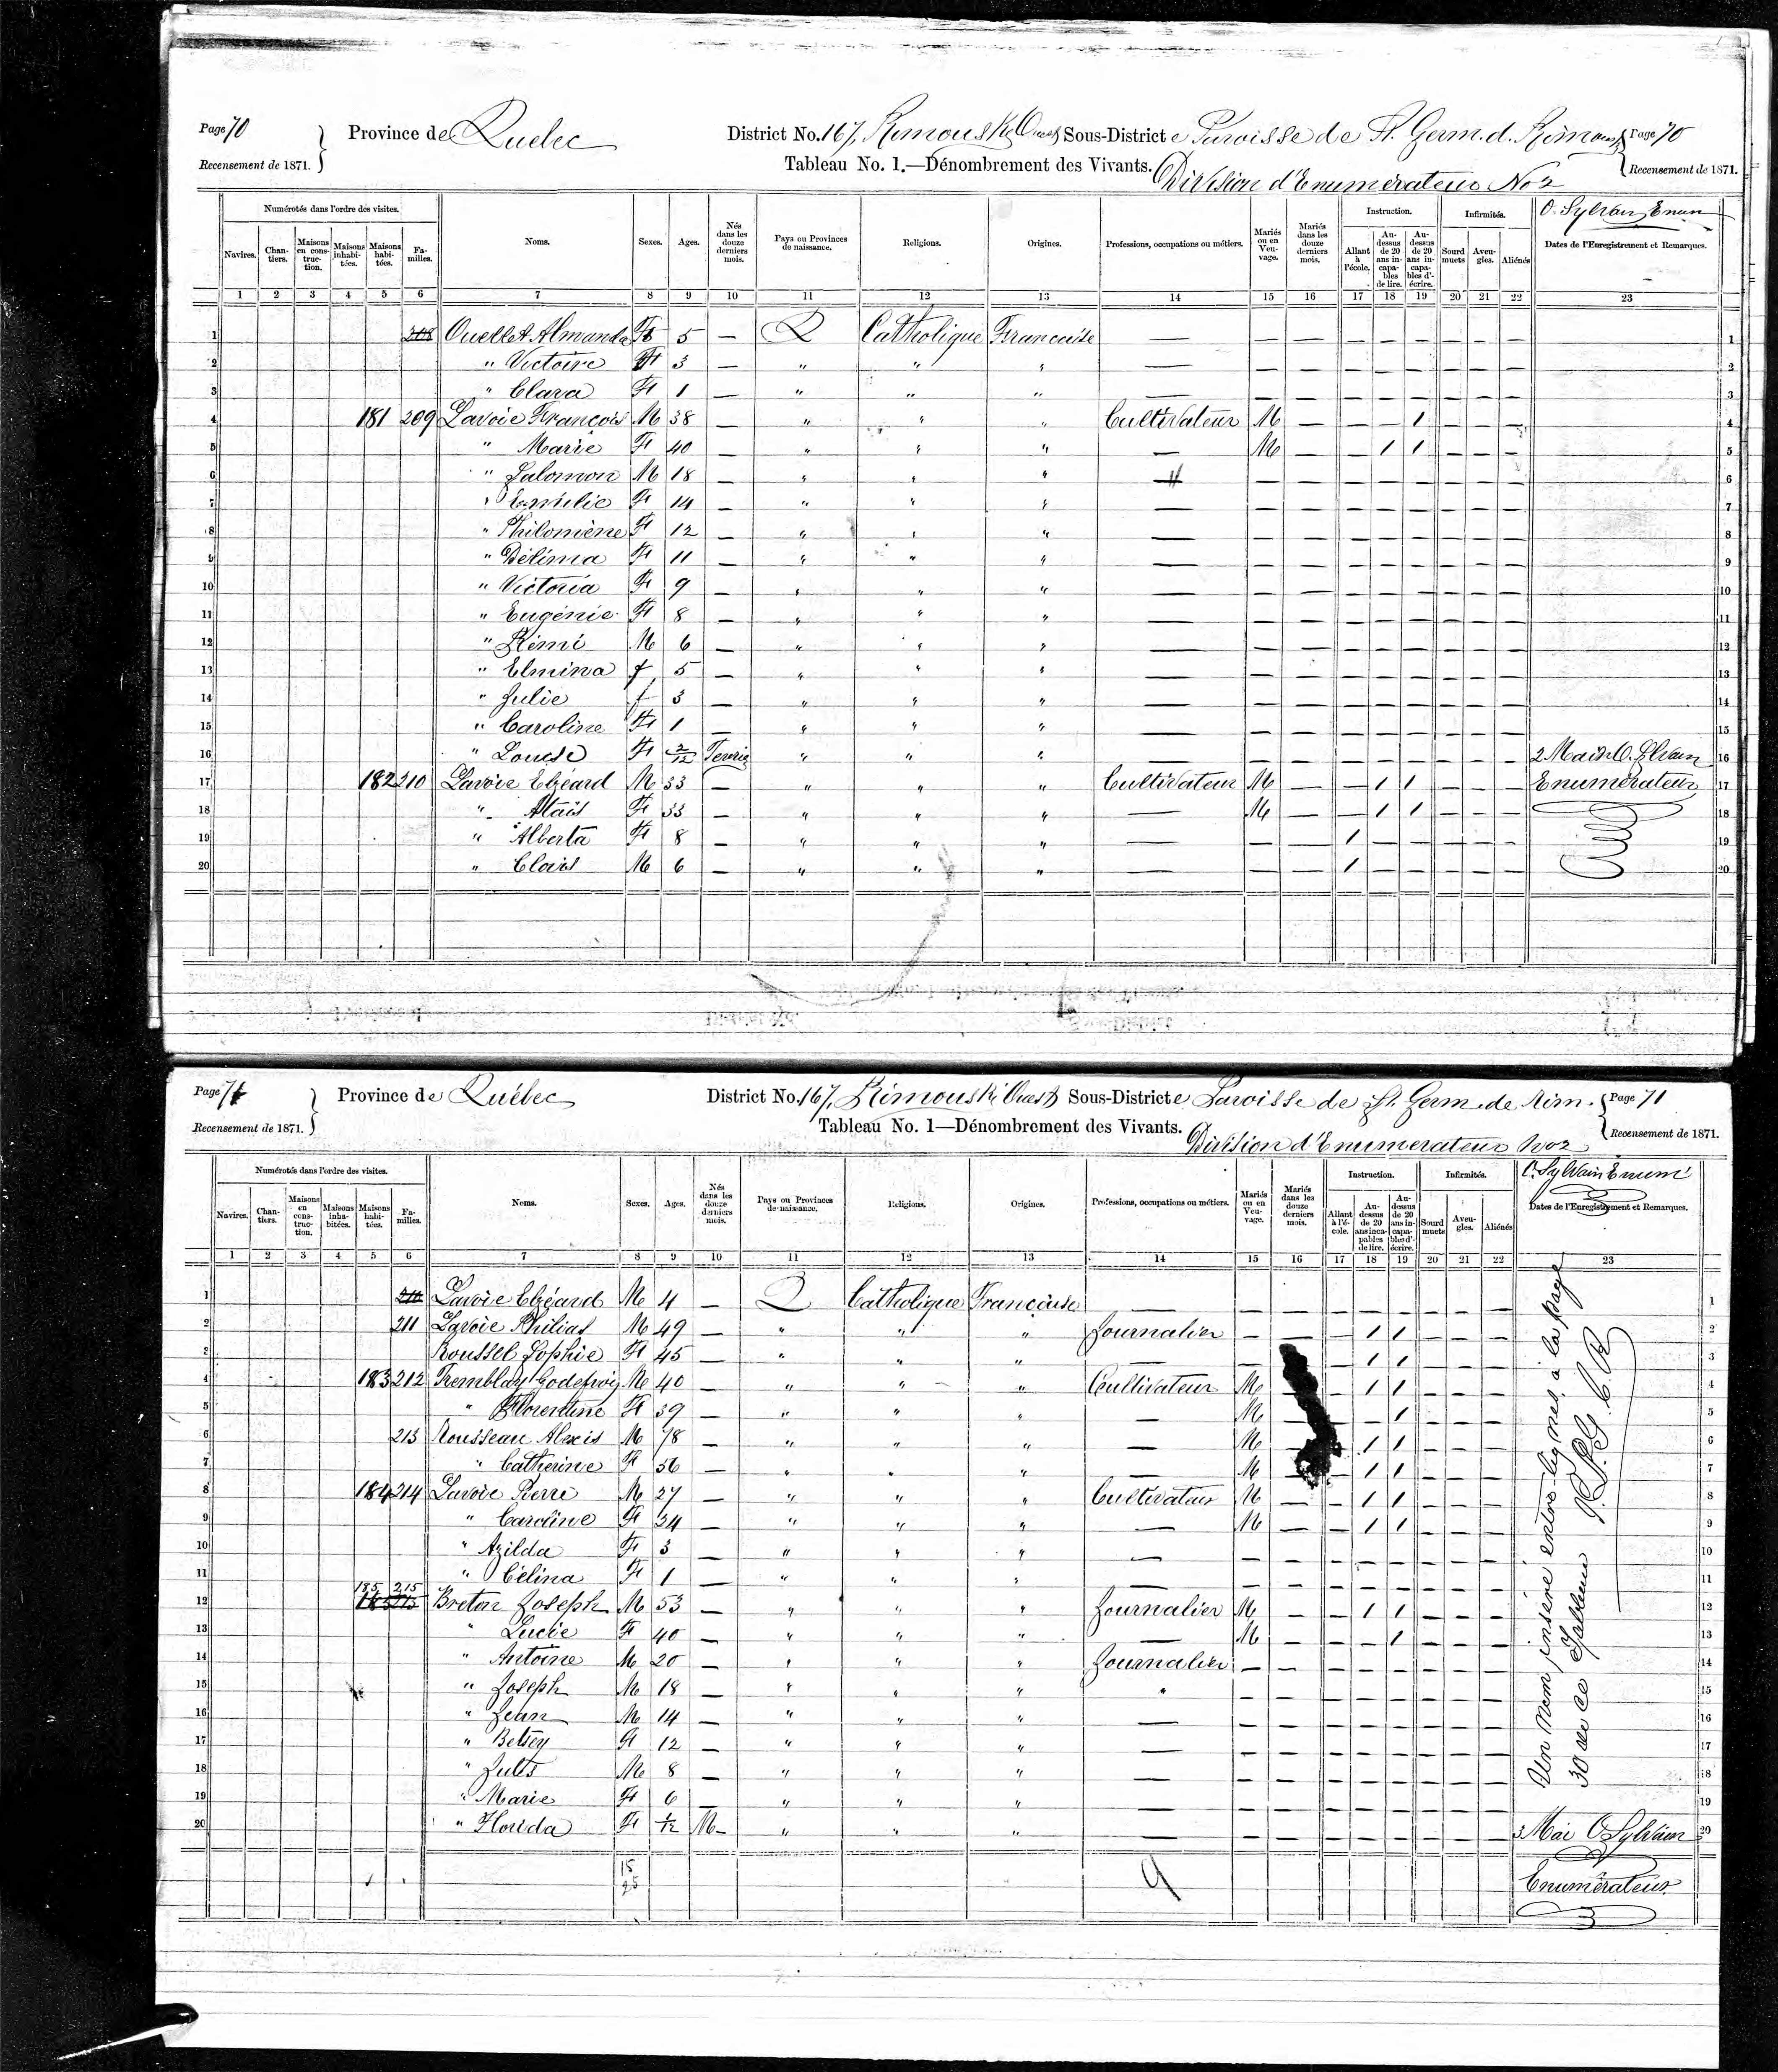 Page 70 Province de Quebec District No. 167, Rimouski Ouest Sous-District e Paroisse de St. Germ. d. Rimouski Page 70
Recensement de 1871. Tableau No. 1.—Dénombrement des Vivants. Division d'Enumerateur No 2 Recensement de 1871.
O. Sylvain Enum
Numérotés dans l'ordre des visites. Noms. Sexes. Ages. Nés dans les douze derniers mois. Pays ou Provinces de naissance. Religions. Origines. Professions, occupations ou métiers. Mariés ou en Veuvage. Mariés dans les douze derniers mois. Instruction. Infirmités. Dates de l'Enregistrement et Remarques.
Navires. Chantiers. Maisons en construction. Maisons inhabitées. Maisons habitées. Familles. Allant à l'école. Au-dessus de 20 ans incapables de lire. Au-dessus de 20 ans incapables d'écrire. Sourd muets Aveugles. Aliénés
1 2 3 4 5 6 7 8 9 10 11 12 13 14 15 16 17 18 19 20 21 22 23
1 208 Ouellet Almanda F 5 — Q Catholique Francaise — — — — — — — — — 1
2 " Victoire F 3 — " " " — — — — — — — — — 2
3 " Clara F 1 — " " " — — — — — — — — — 3
4 181 209 Lavoie François M 38 — " " " Cultivateur M — — — 1 — — — 4
5 " Marie F 40 — " " " — M — — 1 1 — — — 5
6 " Salomon M 18 — " " " — — — — — — — — — 6
7 " Emilie F 14 — " " " — — — — — — — — — 7
8 " Philomène F 12 — " " " — — — — — — — — — 8
9 " Délima F 11 — " " " — — — — — — — — — 9
10 " Victoria F 9 — " " " — — — — — — — — — 10
11 " Eugénie F 8 — " " " — — — — — — — — — 11
12 " Rémi M 6 — " " " — — — — — — — — — 12
13 " Elmina f 5 — " " " — — — — — — — — — 13
14 " Julie f 3 — " " " — — — — — — — — — 14
15 " Caroline F 1 — " " " — — — — — — — — — 15
16 " Louise F 2/12 " " " — — — — — — — — — 2 Mai O. Sylvain 16
17 182 210 Lavoie Elzéard M 33 — " " " Cultivateur M — — 1 1 — — — Enumérateur 17
18 " Atais F 33 — " " " — M — — 1 1 — — — 18
19 " Alberta F 8 — " " " — — — 1 — — — — — 19
20 " Clovis M 6 — " " " — — — 1 — — — — — 20
Page 71 Province de Québec District No. 167, Rimouski Ouest Sous-District e Paroisse de St. Germ. de Rim. Page 71
Recensement de 1871. Tableau No. 1—Dénombrement des Vivants. Division d'Enumerateur No 2 Recensement de 1871.
O. Sylvain Enum
Numérotés dans l'ordre des visites. Noms. Sexes. Ages. Nés dans les douze derniers mois. Pays ou Provinces de naissance. Religions. Origines. Professions, occupations ou métiers. Mariés ou en Veuvage. Mariés dans les douze derniers mois. Instruction. Infirmités. Dates de l'Enregistrement et Remarques.
Navires. Chantiers. Maisons en construction. Maisons inhabitées. Maisons habitées. Familles. Allant à l'école. Au-dessus de 20 ans incapables de lire. Au-dessus de 20 ans incapables d'écrire. Sourd muets Aveugles. Aliénés
1 2 3 4 5 6 7 8 9 10 11 12 13 14 15 16 17 18 19 20 21 22 23
1 210 Lavoie Elzéard M 4 — Q Catholique Francaise — — — — — — — — — 1
2 211 Lavoie Philias M 49 — " " " Journalier — — — 1 1 — — — 2
3 Roussel Sophie F 45 — " " " — — — — 1 1 — — — 3
4 183 212 Tremblay Godefroy M 40 — " " " Cultivateur M — 1 1 — — — 4
5 " Florentine F 39 — " " " — M — — 1 — — — 5
6 213 Rousseau Alexis M 78 — " " " — M 1 1 — — — 6
7 " Catherine F 56 — " " " — M — 1 1 — — — 7
8 184 214 Lavoie Pierre M 27 — " " " Cultivateur M — — 1 1 — — — 8
9 " Caroline F 24 — " " " — M — — 1 1 — — — 9
10 " Azilda F 3 — " " " — — — — — — — — — 10
11 " Célina F 1 — " " " — — — — — — — — — 11
185 215
12 Breton Joseph M 53 — " " " Journalier M — — 1 1 — — — 12
13 " Lucie F 40 — " " " — M — — — 1 — — — 13
14 " Antoine M 20 — " " " Journalier — — — — — — — — 14
15 " Joseph M 18 — " " " " — — — — — — — — 15
16 " Jean M 14 — " " " — — — — — — — — — 16
17 " Betsey F 12 — " " " — — — — — — — — — 17
18 " Jules M 8 — " " " — — — — — — — — — 18
19 " Marie F 6 — " " " — — — — — — — — — 19
20 " Florida F 1/12 M— " " " — — — — — — — — — 3 Mai O Sylvain 20
Enumérateur
15
25
9
Un nom inséré entre lignes, à la page
30 Tableau